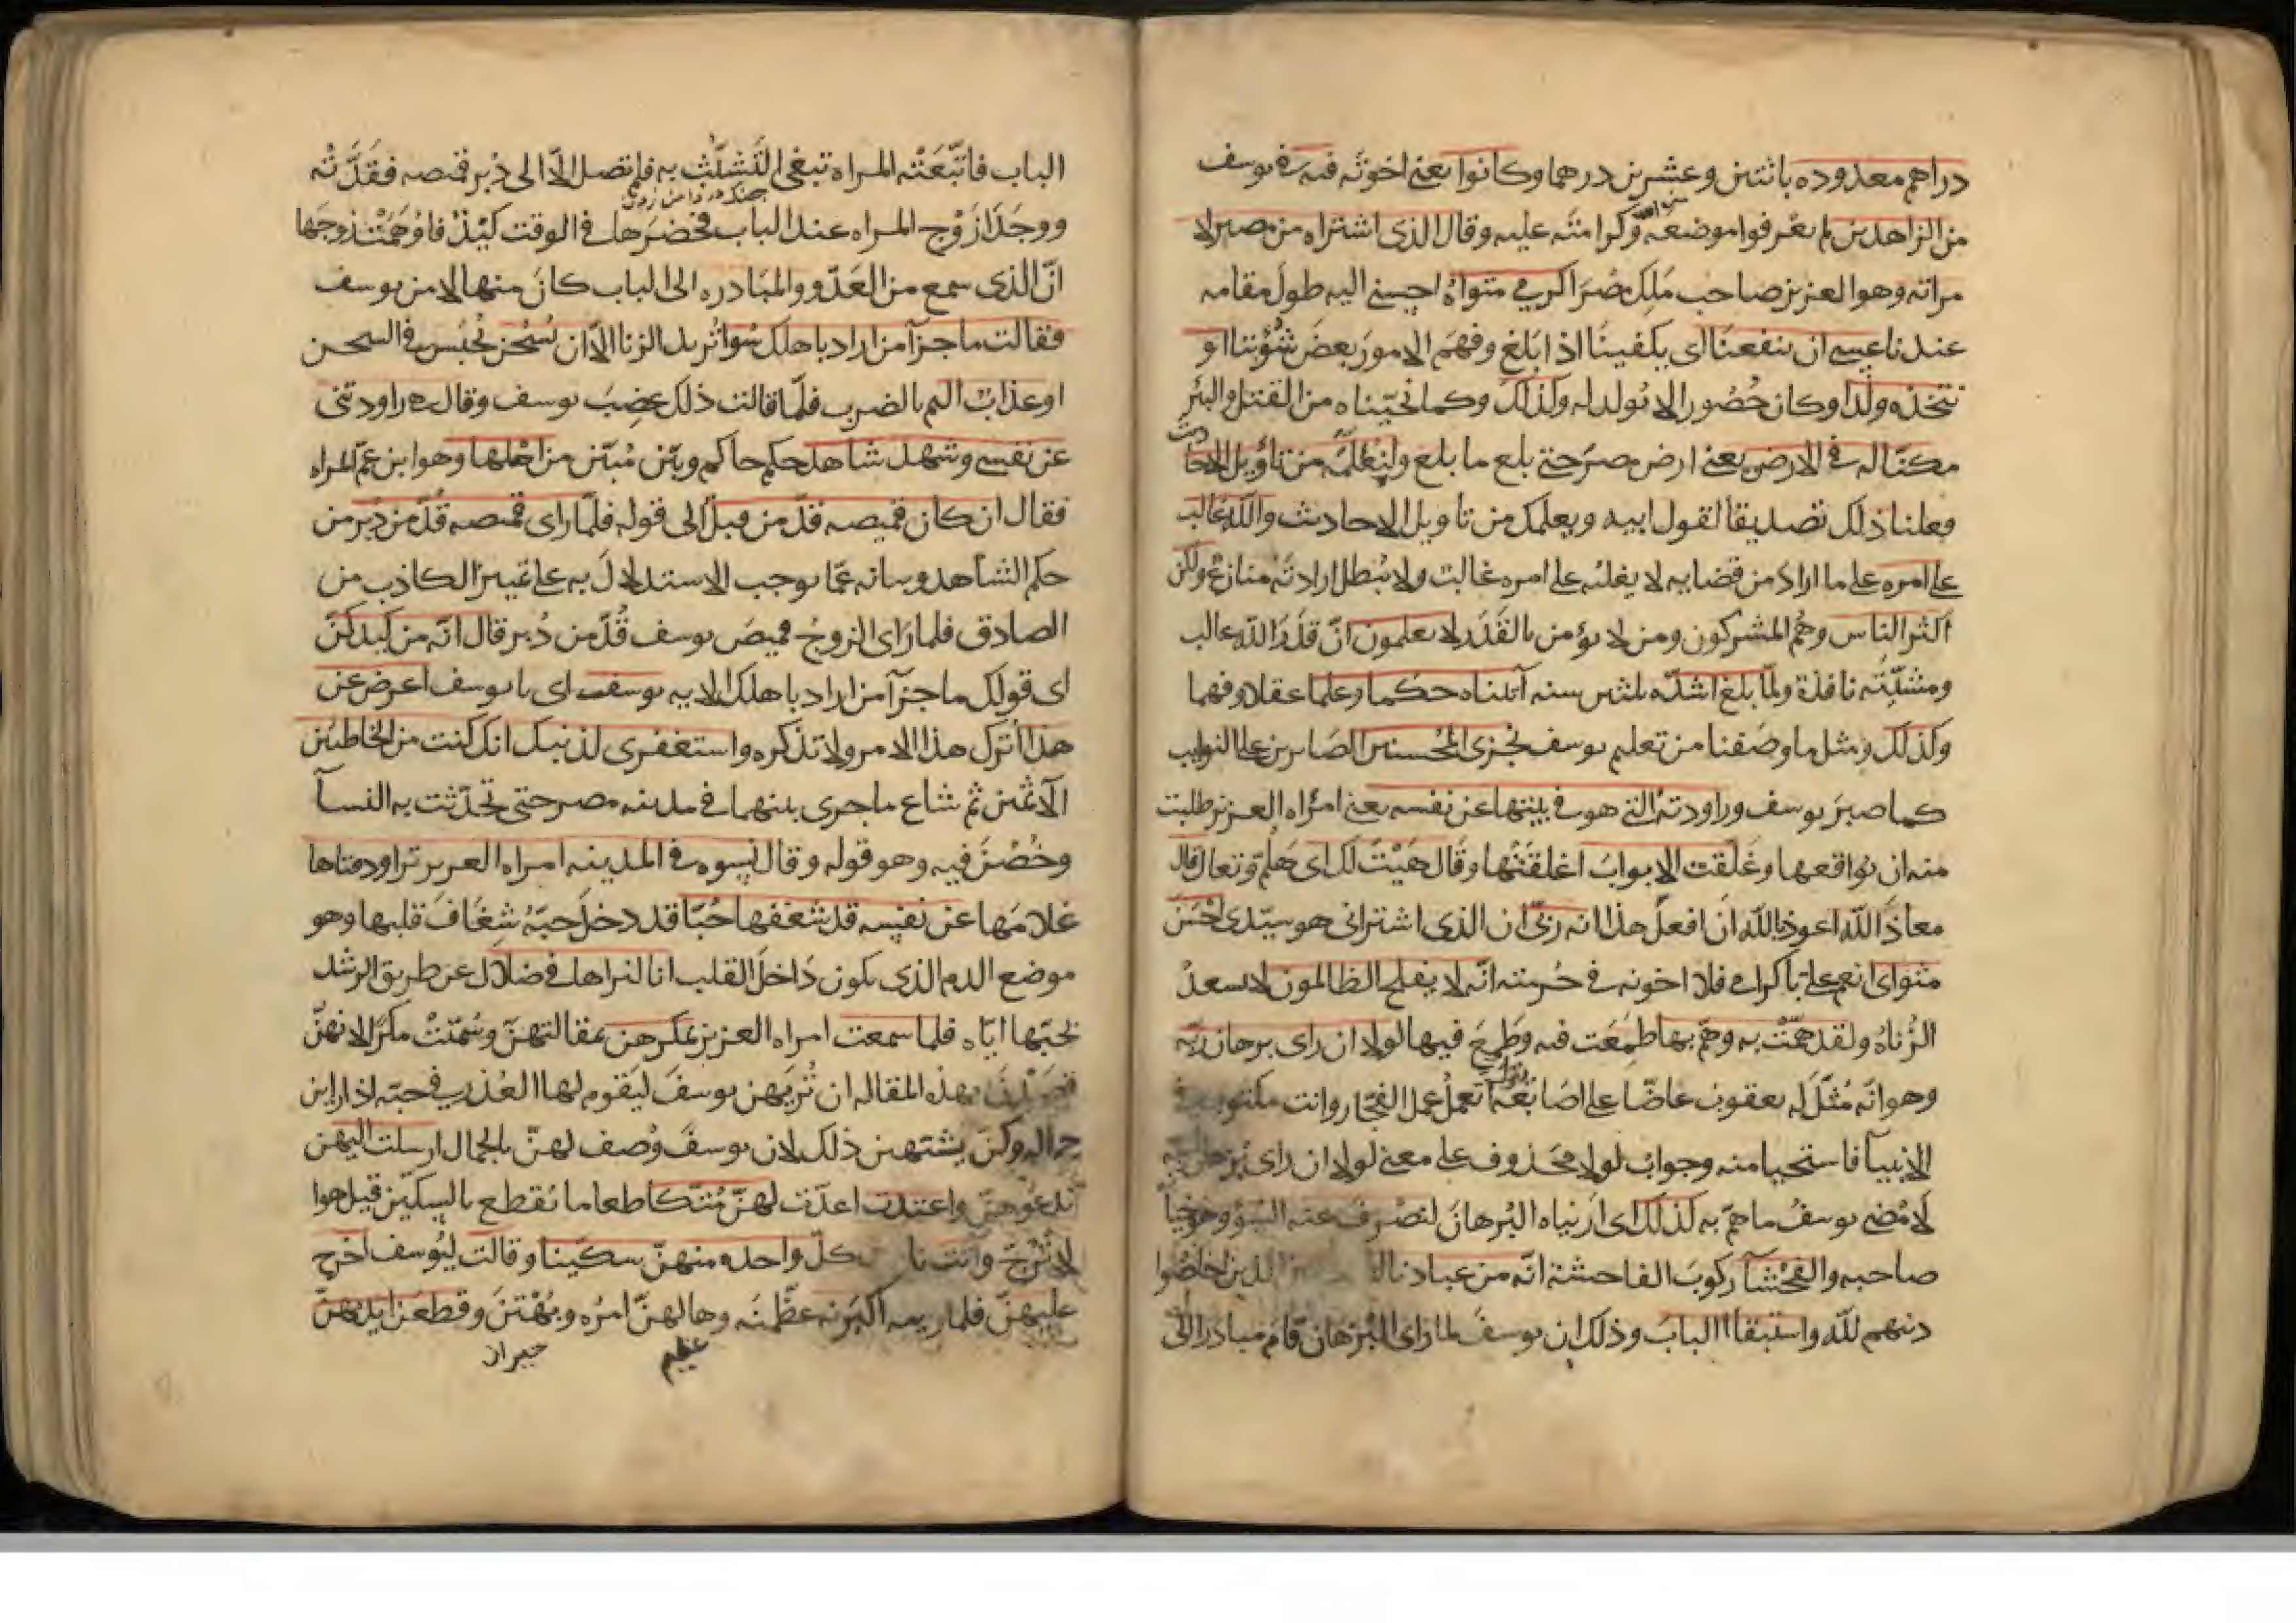 دراهم معدوده باثنتين وعشرين درهما وكانوا يعني اخوته فيه في يوسف
من الزاهدين لم يعرفوا موضعه وكرامته عليه وقال الذي اشتراه من مصر لا
مراته وهو العزيز صاحب ملك مصر اكرمي مثواه احسني اليه طول مقامه
عندنا عسى ان ينفعنا اى يكفينا اذا بلغ وفهم الامور بعض شؤننا او
نتخذه ولدا وكان حصورا لا يولد له وكذلك وكما نجيناه من القتل والبئر
مكنا له في الارض يعني ارض مصر حتى بلغ ما بلغ ولنعلمه من تاويل الاحا
ديث
فعلنا ذلك تصديقا لقول ابيه ويعلمك من تاويل الاحاديث والله غالب
على امره على ما اراد من قضايه لا يغلبه على امره غالب ولا يبطل ارادته منازع ولكن
اكثر الناس وهم المشركون ومن لا يؤمن بالقدر لا يعلمون ان قدر الله غالب
ومشيته نافذة ولما بلغ اشده ثلثين سنه آتيناه حكما وعلما عقلا وفهما
وكذلك ومثل ما وصفنا من تعليم يوسف نجزى المحسنين الصابرين على النوايب
كما صبر يوسف وراودته التي هو في بيتها عن نفسه يعني امراه العزيز طلبت
منه ان يواقعها وغلقت الابواب اغلقتها وقال هيت لك اى هلم وتعال قال
معاذ الله اعوذ بالله ان افعل هذا انه ربى ان الذى اشترانى هو سيدى احسن
مثواى انعم على باكرامى فلا اخونه في حرمته انه لا يفلح الظالمون لا يسعد
الزناه ولقد همت به وهم بها طمعت فيه وطمع فيها لولا ان راى برهان ربه
وهو انه مثل له يعقوب عاضا على اصابعه اتعمل عمل الفجار وانت مكتوب في
الانبيآ فاستحيا منه وجواب لولا محذوف على معنى لولا ان راى برهان ربه
لامضى يوسف ما هم به كذلك اى اريناه البرهان لنصرف عنه السؤ وهو خيانه
صاحبه والفحشآ ركوب الفاحشة انه من عبادنا الذين اخلصوا
دينهم لله واستبقا الباب وذلك ان يوسف لما راى البرهان قام مبادرا الى
الباب فاتبعته المراه تبغى التشبث به فلم تصل الا الى دبر قميصه فقدته
ووجدا زوج المراه عند الباب فحضرها في الوقت كيد فاوهمت زوجها
ان الذى سمع من العدو والمبادره الى الباب كان منها لا من يوسف
فقالت ما جزآ من اراد باهلك سوا تريد الزنا الا ان يسجن يحبس في السجن
او عذاب اليم بالضرب فلما قالت ذلك غضب يوسف وقال هي راودتني
عن نفسي وشهد شاهد حكم حاكم وبين مبين من اهلها وهو ابن عم المراه
فقال ان كان قميصه قد من قبل الى قوله فلما راى قميصه قد من دبر من
حكم الشاهد وبيانه عما يوجب الاستدلال به على تمييز الكاذب من
الصادق فلما راى الزوج قميص يوسف قد من دبر قال انه من كيدكن
اى قولك ما جزآ من اراد باهلك الايه يوسف اى يا يوسف اعرض عن
هذا اترك هذا الامر ولا تذكره واستغفرى لذنبك انك كنت من الخاطئين
الآثمين ثم شاع ما جرى بينهما في مدينه مصر حتى تحدثت به النسآ
وخضن فيه وهو قوله وقال نسوه في المدينه امراه العزيز تراود فتاها
غلامها عن نفسه قد شغفها حبا قد دخل حبه شغاف قلبها وهو
موضع الدم الذى يكون داخل القلب انا لنراها في ضلال عن طريق الرشد
بحبها اياه فلما سمعت امراه العزيز بمكرهن بمقالتهن وسميت مكرا لانهن
قصدن بهذه المقاله ان تريهن يوسف ليقوم لها العذر في حبه اذا راين
جماله وكن يشتهين ذلك لان يوسف وصف لهن بالجمال ارسلت اليهن
تدعوهن واعتدت اعدت لهن متكا طعاما يقطع بالسكين قيل هو ا
لاترج وآتت كل واحده منهن سكينا وقالت ليوسف اخرج
عليهن فلما راينه اكبرنه عظمنه وهالهن امره وبهتن وقطعن ايديهن
عظيم حيران